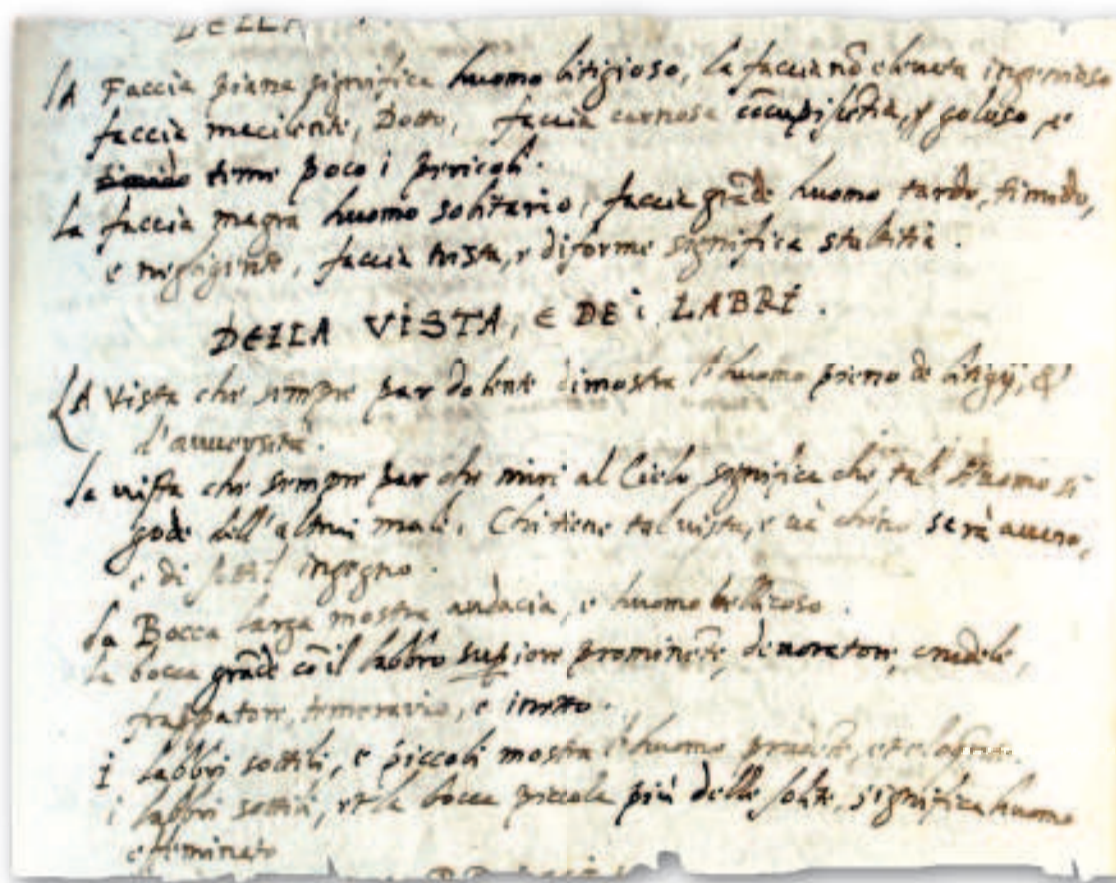 DELLA
LA Faccia piana significa huomo litigioso, la faccia nō elevata ingenioso
faccia macilente, Dotto, faccia carnosa cōcupiscētia, goloso
teme poco i pericoli.
La faccia magra huomo solitario, faccia grāde huomo tardo, timido,
e negligente, faccia trista, e diforme significa stultitia.
DELLA VISTA, E DEi LABRI.
LA Vista che sempre par dolente dimostra l'huomo pieno de litigij, &
d'auuersità.
La uista che sempre par che miri al Cielo significa che tal Huomo si
gode dell'altrui mali. Chi tiene tal uista, e uà chino serà auaro,
e di sottil ingegno.
La Bocca larga mostra audacia, e huomo bellicoso.
La bocca grāde cō il labbro supiore prominēte, deuoratore, crudele,
temerario, e
i labbri sottili, e piccoli mostra l'huomo prudēte,
i labbri sottili, et la bocca piccola più delle solite, significa huomo
effeminato